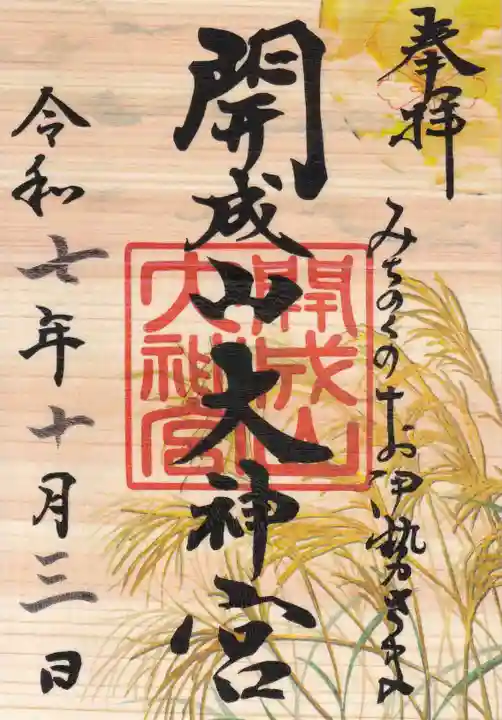 奉拝
みちのくのおお伊勢さま
開成山大神宮
開成山
大神宮
令和七年十月三日